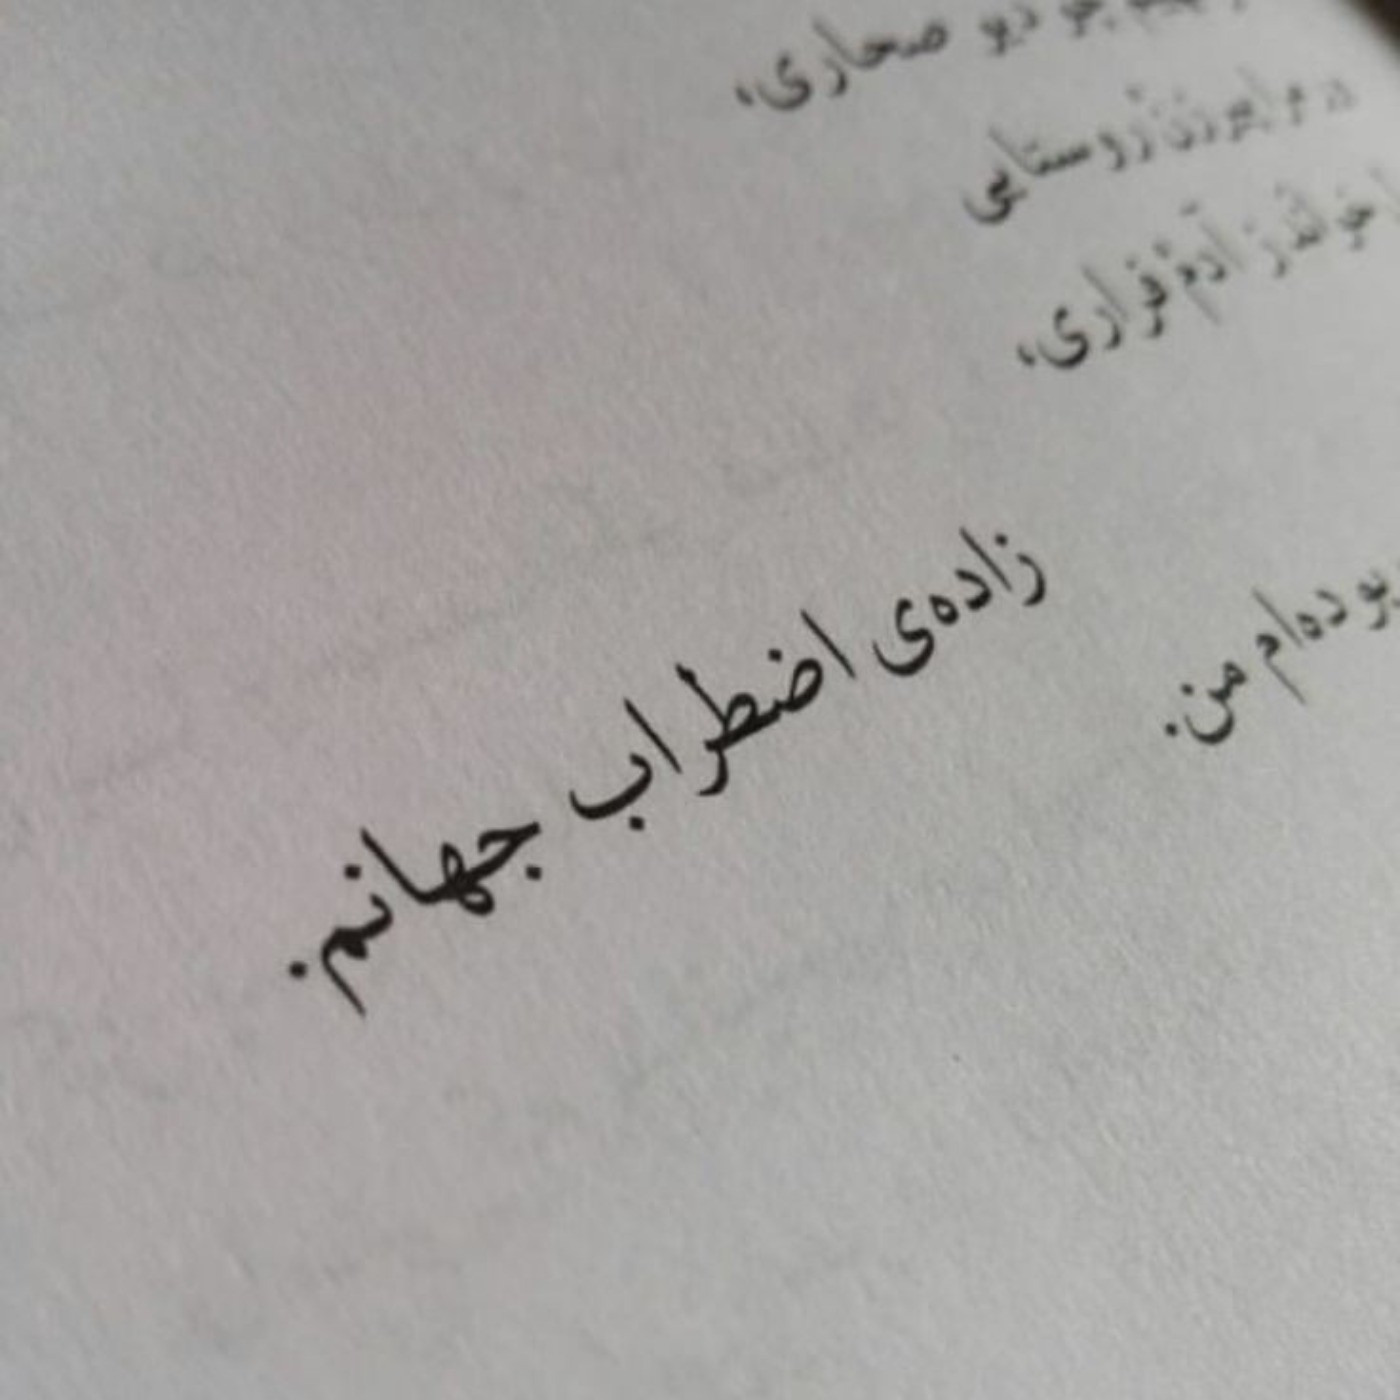 دیو صحاری،
روستایی
آدم فراری،
بوده‌ام من.
زاده‌ی اضطراب جهانم.